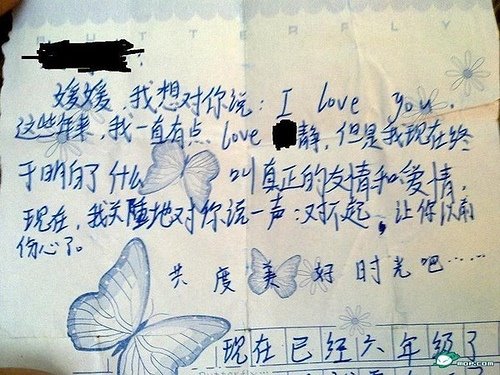 BUTTERFLY
媛媛，我想对你说：I love you.
这些年来，我一直有点 love 静，但是我现在终
于明白了什么叫真正的友情和爱情，
现在，我关隆地对你说一声：对不起，让你以前
伤心了。
共度美好时光吧……
现在已经六年级了
mop.com